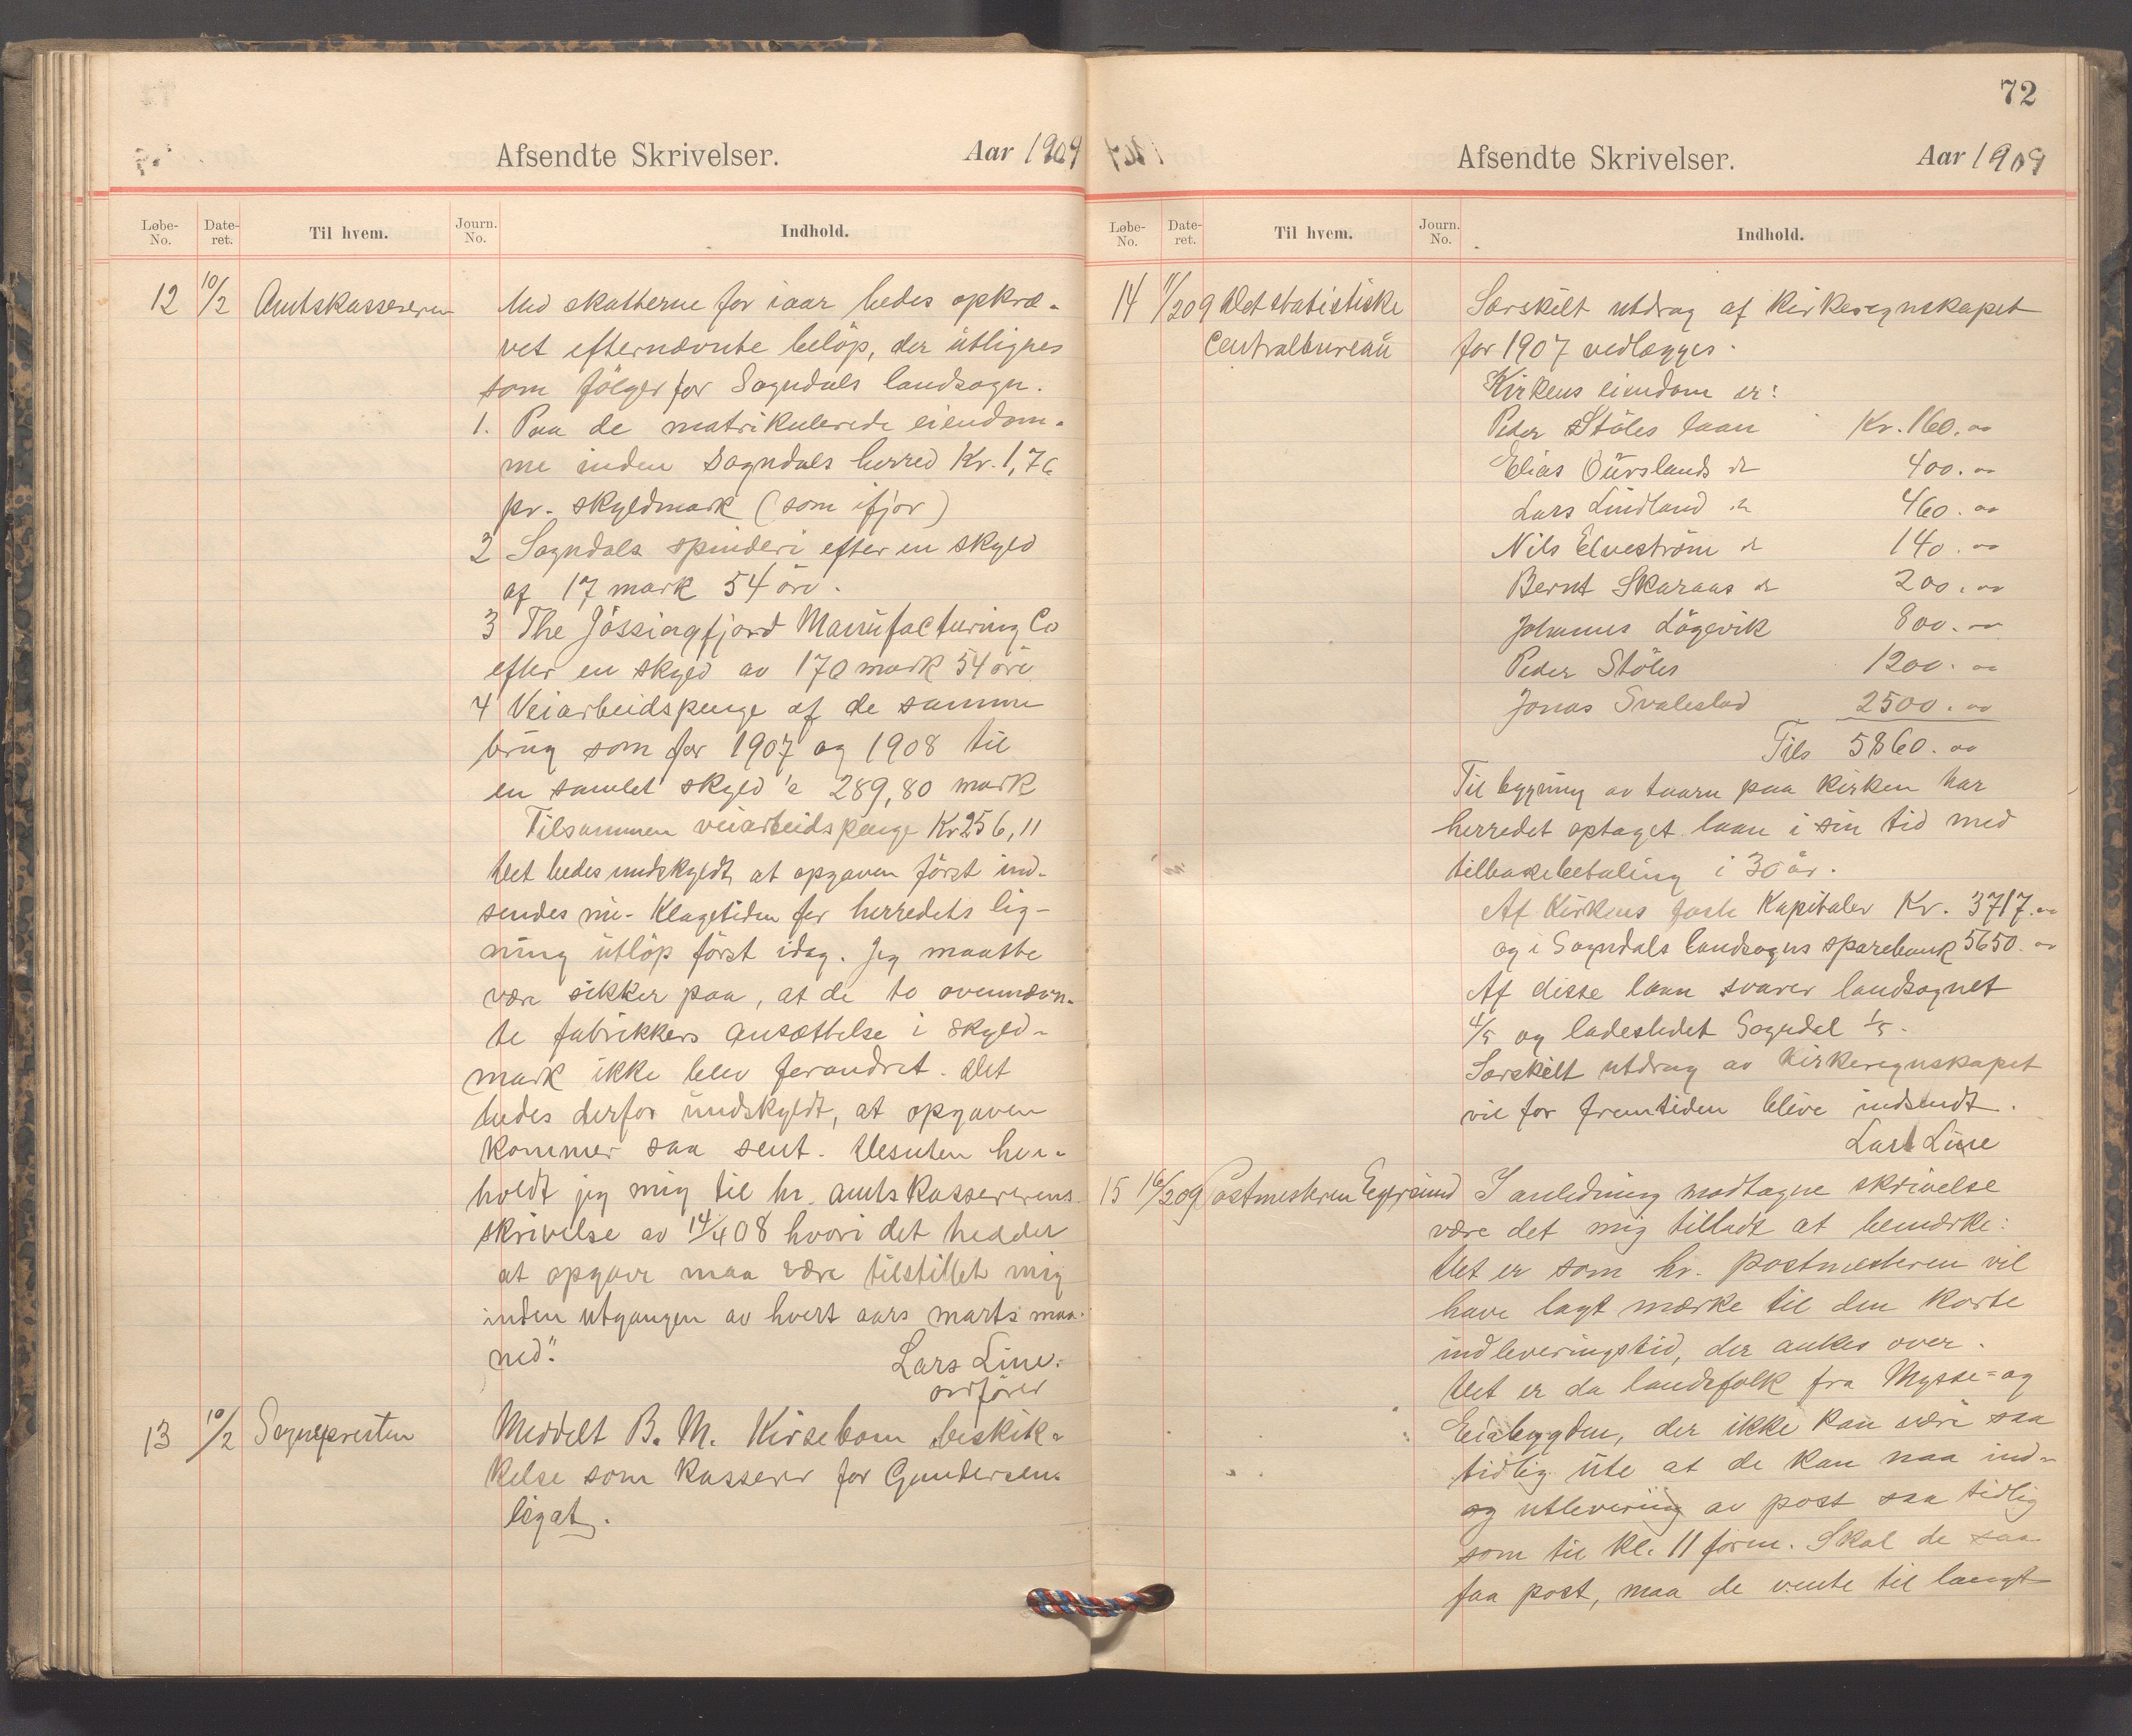 Afsendte Skrivelser. Aar 1909
Løbe-No. Date-ret. Til hvem. Journ. No. Indhold.
12 10/2 Amtskassereren Med skatterne for iaar bedes opkræ-
vet efternævnte beløp, der utlignes
som følger for Sogndals landsogn.
1. Paa de matrikulerede eiendom-
me inden Sogndals herred Kr. 1,76
pr. skyldmark (som ifjor)
2 Sogndals spinderi efter en skyld
af 17 mark 54 öre.
3 The Jössingfjord Manufacturing Co
efter en skyld av 170 mark 54 öre
4 Veiarbeidspenge af de samme
brug som for 1907 og 1908 til
en samlet skyld a 289,80 mark
Tilsammen veiarbeidspenge Kr 256,11
Det bedes undskyldt, at opgaven först ind-
sendes nu - Klagetiden for herredets lig-
ning utlöp först idag. Jeg maatte
være sikker paa, at de to ovennævn-
te fabrikkers ansættelse i skyld-
mark ikke blev forandret. Det
bedes derfor undskyldt, at opgaven
kommer saa sent. Desuten hen-
holdt jeg mig til hr. amtskassererens
skrivelse av 14/4 08 hvori det hedder
at opgave maa være tilstillet mig
inden utgangen av hvert aars marts maa-
ned".
Lars Line.
ordförer
13 10/2 Sognepresten Meddelt B. M. Kirsebom beskik-
kelse som kasserer for Gundersens
legat.
72
Afsendte Skrivelser. Aar 1909
Løbe-No. Date-ret. Til hvem. Journ. No. Indhold.
14 11/2 09 Det statistiske Særskilt utdrag af kirkeregnskapet
Centralbureau for 1907 vedlægges.
Kirkens eiendom er:
Peder Stöles laan Kr. 160.00
Elias Øurslands do 400.00
Lars Lindland do 460.00
Nils Elvestrøm do 140.00
Bernt Skaraas do 200.00
Johannes Lögevik 800.00
Peder Stöles 1200.00
Jonas Svalestad 2500.00
Tils 5860.00
Til bygning av taarn paa kirken har
herredet optaget laan i sin tid med
tilbakebetaling i 30 år.
Af Kirkens faste Kapitaler Kr. 3717.00
og i Sogndals landsogns sparebank 5650.00
Af disse laan svarer landsognet
4/5 og ladestedet Sogndal 1/5.
Særskilt utdrag av kirkeregnskapet
vil for fremtiden blive indsendt.
Lars Line
15 16/2 09 Postmesteren Egersund I anledning modtagne skrivelse
være det mig tilladt at bemærke:
Det er som hr. postmesteren vil
have lagt mærke til den korte
indleveringstid, der ankes over.
Det er da landsfolk fra Mysse- og
Eiabygden, der ikke kan være saa
tidlig ute at de kan naa ind-
og utlevering av post saa tidlig
som til kl. 11 form. Skal de saa
faa post, maa de vente til langt